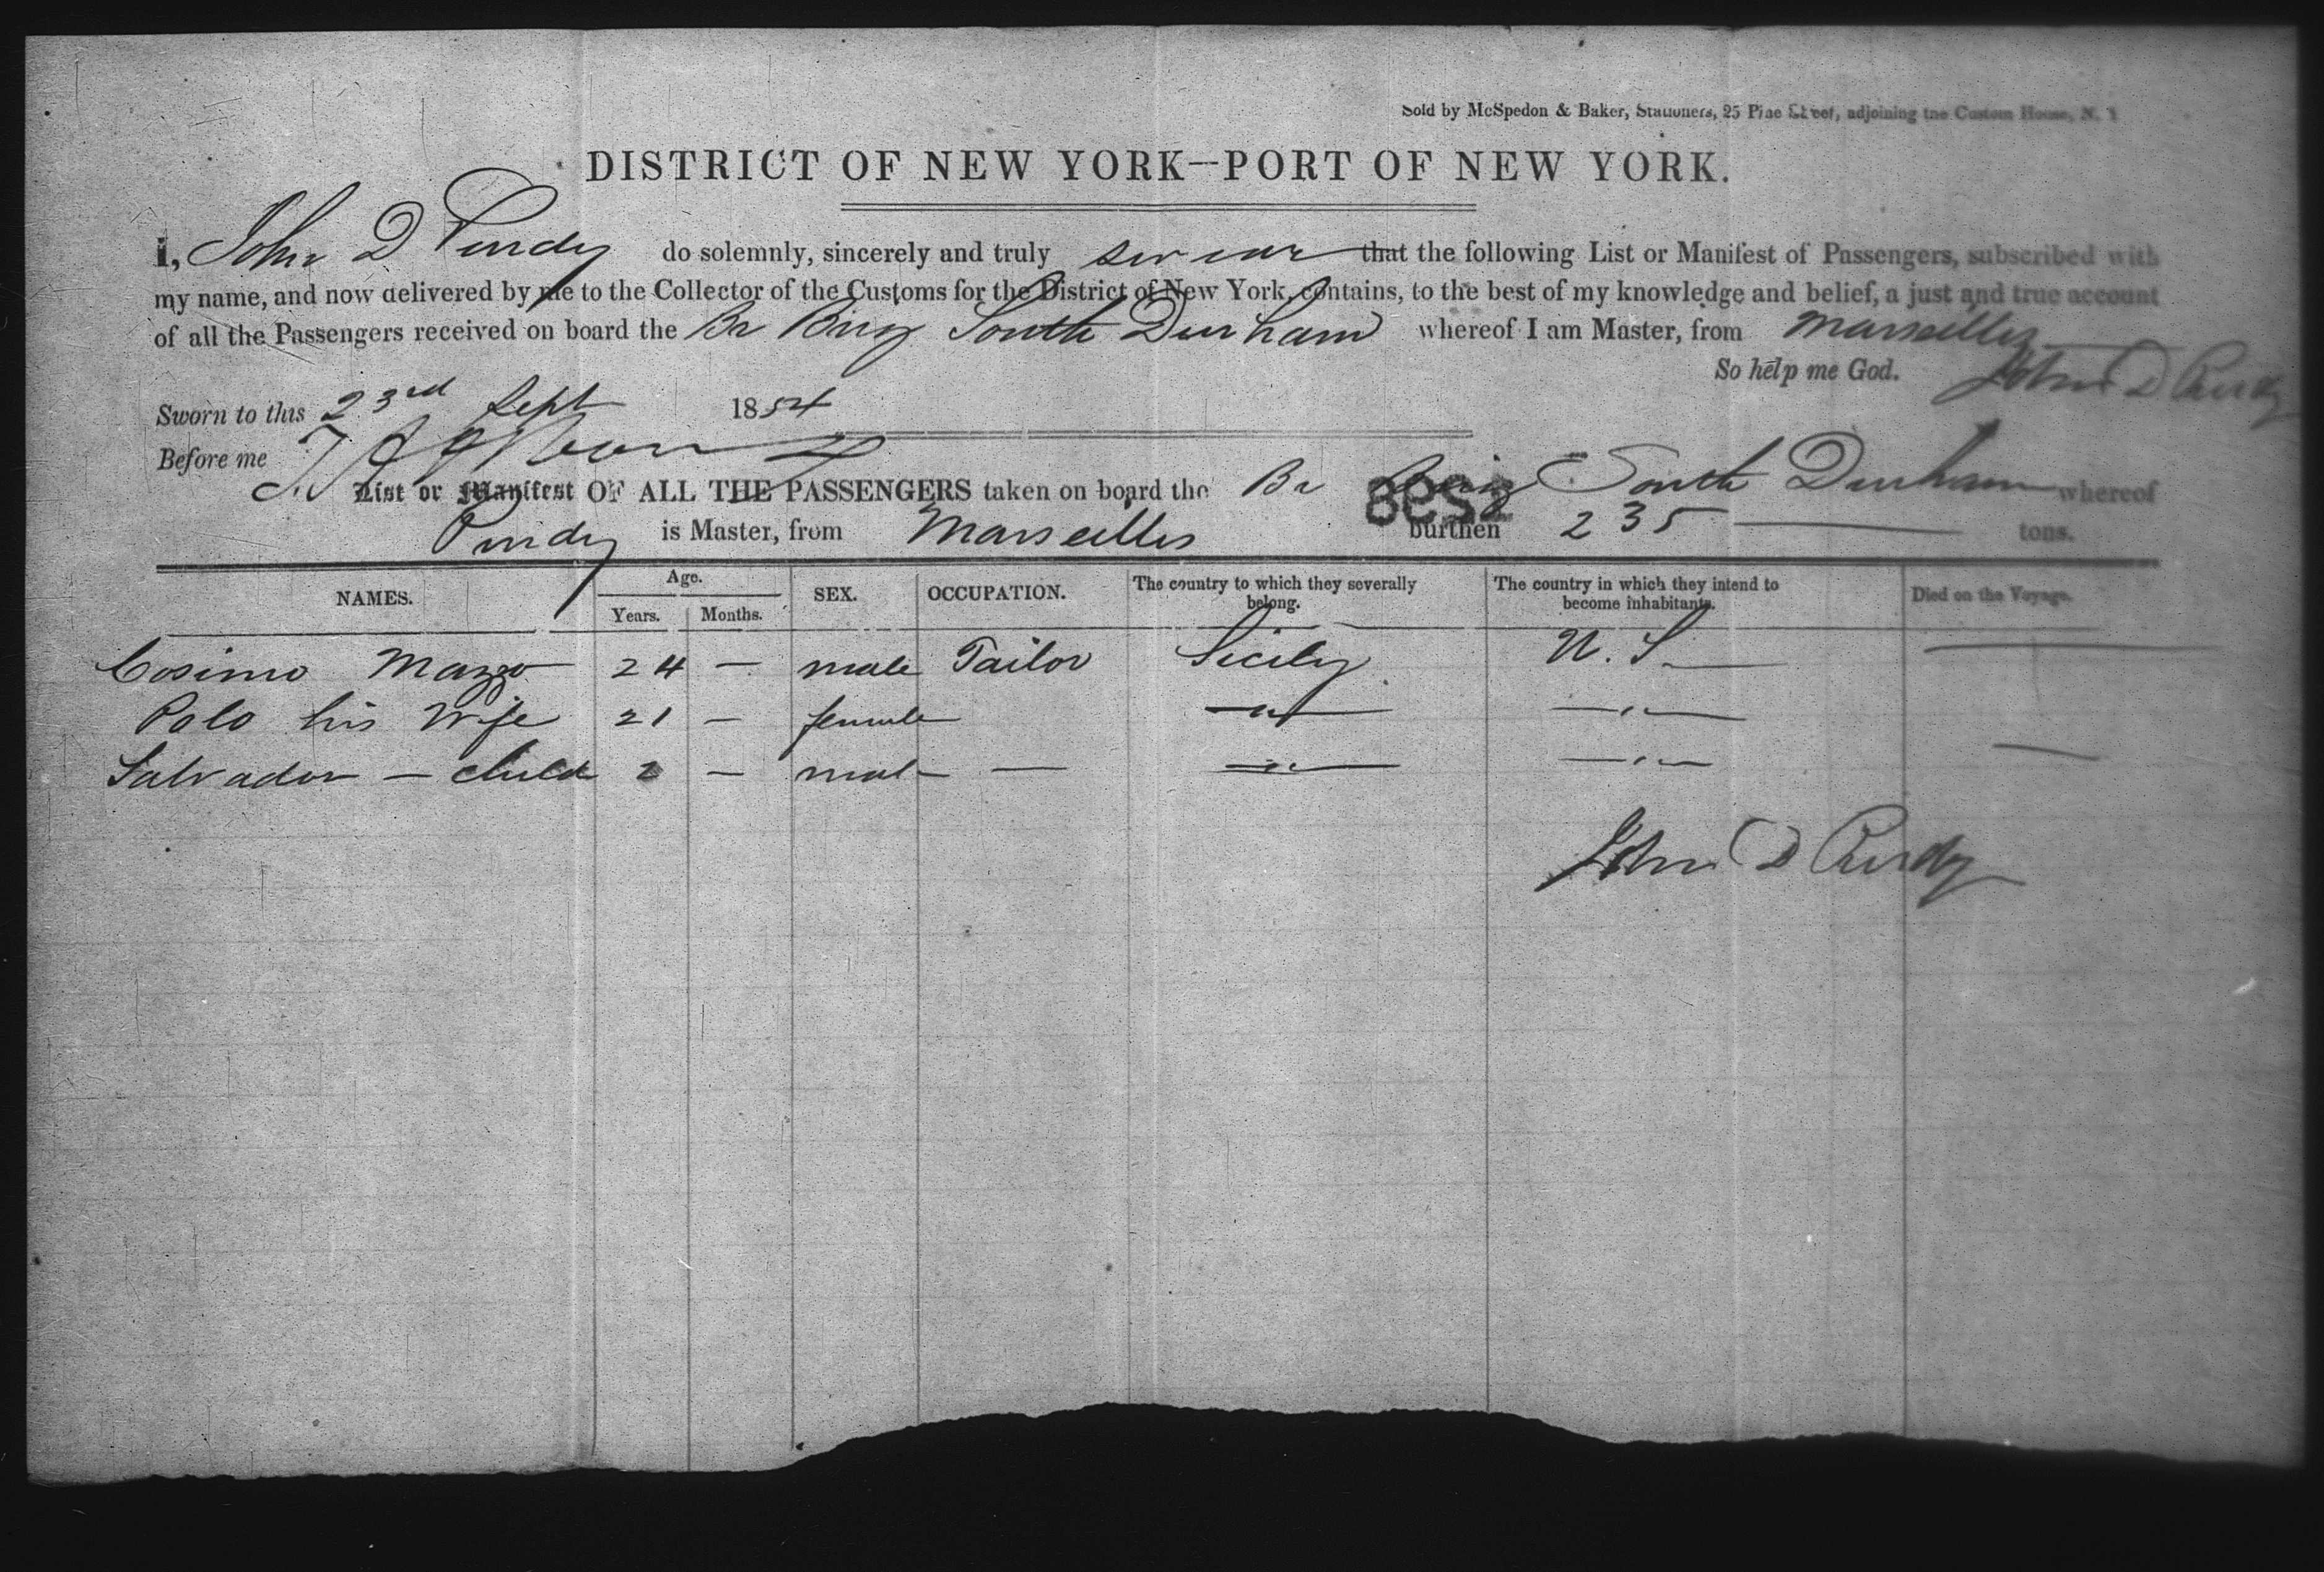 Sold by McSpedon & Baker, Stationers, 25 Pine Street, adjoining the Custom House, N. Y
DISTRICT OF NEW YORK—PORT OF NEW YORK.
I, John D Purdy do solemnly, sincerely and truly swear that the following List or Manifest of Passengers, subscribed with
my name, and now delivered by me to the Collector of the Customs for the District of New York, contains, to the best of my knowledge and belief, a just and true account
of all the Passengers received on board the Br Brig South Durham whereof I am Master, from Marseilles
So help me God. John D Purdy
Sworn to this 23rd Sept 1854
Before me
List or Manifest OF ALL THE PASSENGERS taken on board the Br Brig South Durham whereof
Purdy is Master, from Marseilles burthen 235 tons.
898
NAMES. Age. Years. Months. SEX. OCCUPATION. The country to which they severally belong. The country in which they intend to become inhabitants. Died on the Voyage.
Cosimo Mazzo 24 — male Tailor Sicily U. S —
Polo his Wife 21 — female — " — — " —
Salvador — child 2 — mal — — — " — — " — —
John D Purdy